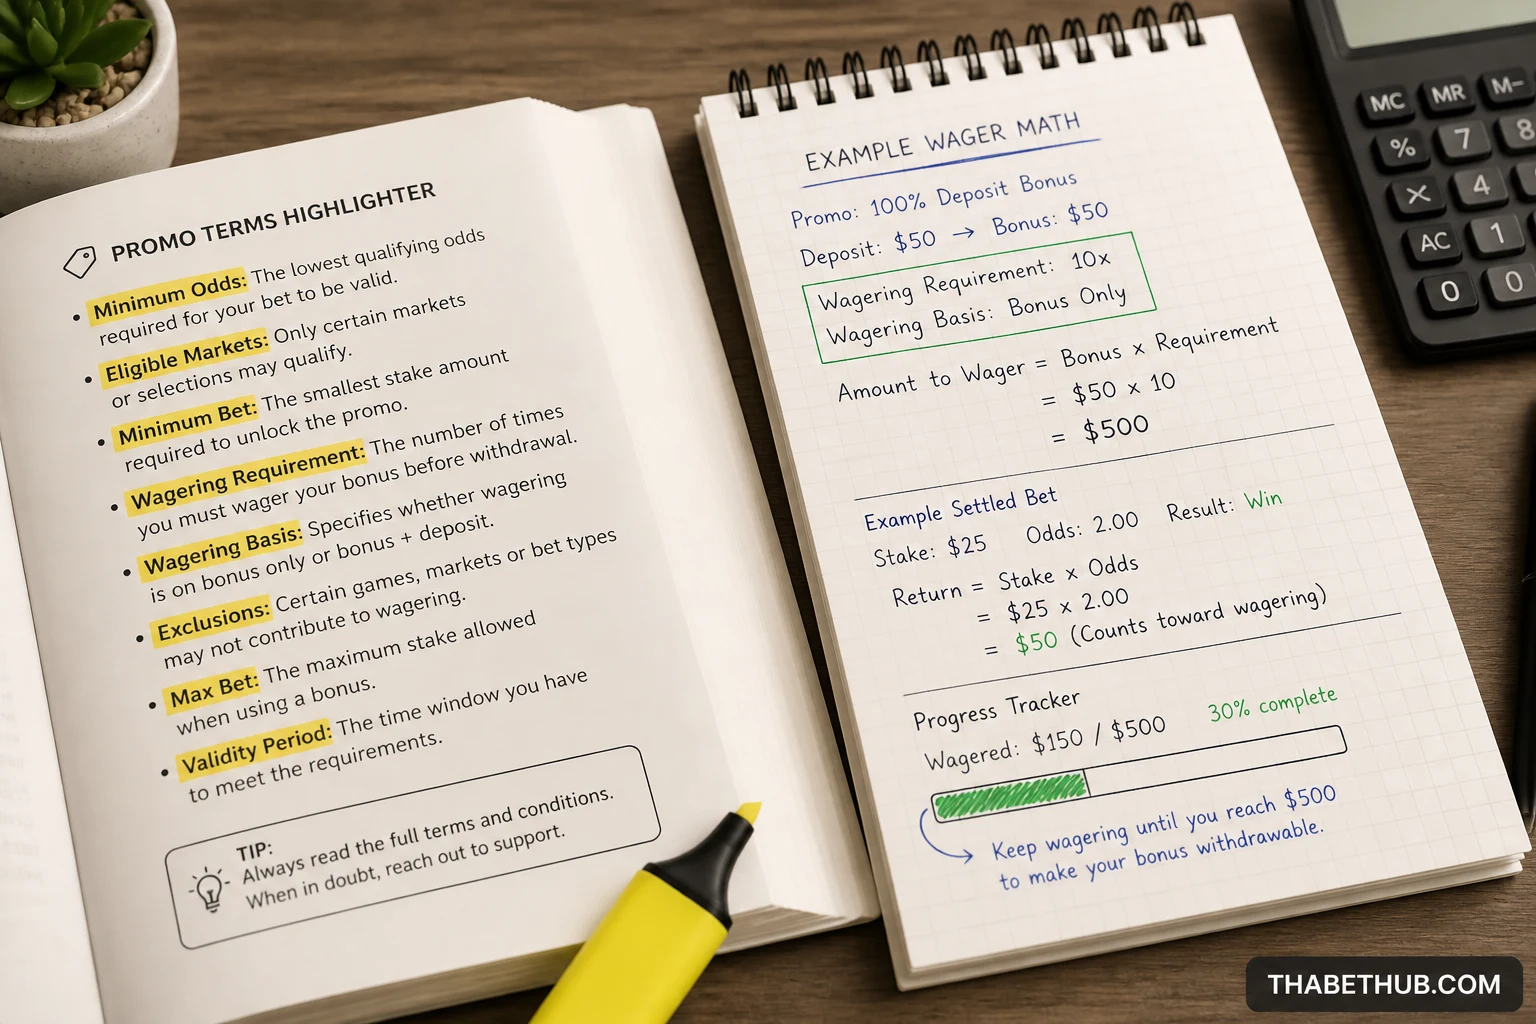 PROMO TERMS HIGHLIGHTER
• Minimum Odds: The lowest qualifying odds
required for your bet to be valid.
• Eligible Markets: Only certain markets
or selections may qualify.
• Minimum Bet: The smallest stake amount
required to unlock the promo.
• Wagering Requirement: The number of times
you must wager your bonus before withdrawal.
• Wagering Basis: Specifies whether wagering
is on bonus only or bonus + deposit.
• Exclusions: Certain games, markets or bet types
may not contribute to wagering.
• Max Bet: The maximum stake allowed
when using a bonus.
• Validity Period: The time window you have
to meet the requirements.
TIP:
Always read the full terms and conditions.
When in doubt, reach out to support.
EXAMPLE WAGER MATH
Promo: 100% Deposit Bonus
Deposit: $50 → Bonus: $50
Wagering Requirement: 10x
Wagering Basis: Bonus Only
Amount to Wager = Bonus × Requirement
= $50 × 10
= $500
Example Settled Bet
Stake: $25 Odds: 2.00 Result: Win
Return = Stake × Odds
= $25 × 2.00
= $50 (Counts toward wagering)
Progress Tracker
Wagered: $150 / $500 30% complete
Keep wagering until you reach $500
to make your bonus withdrawable.
MC MR M−
% 7 8
× 4
AC 1
0 0
THABETHUB.COM